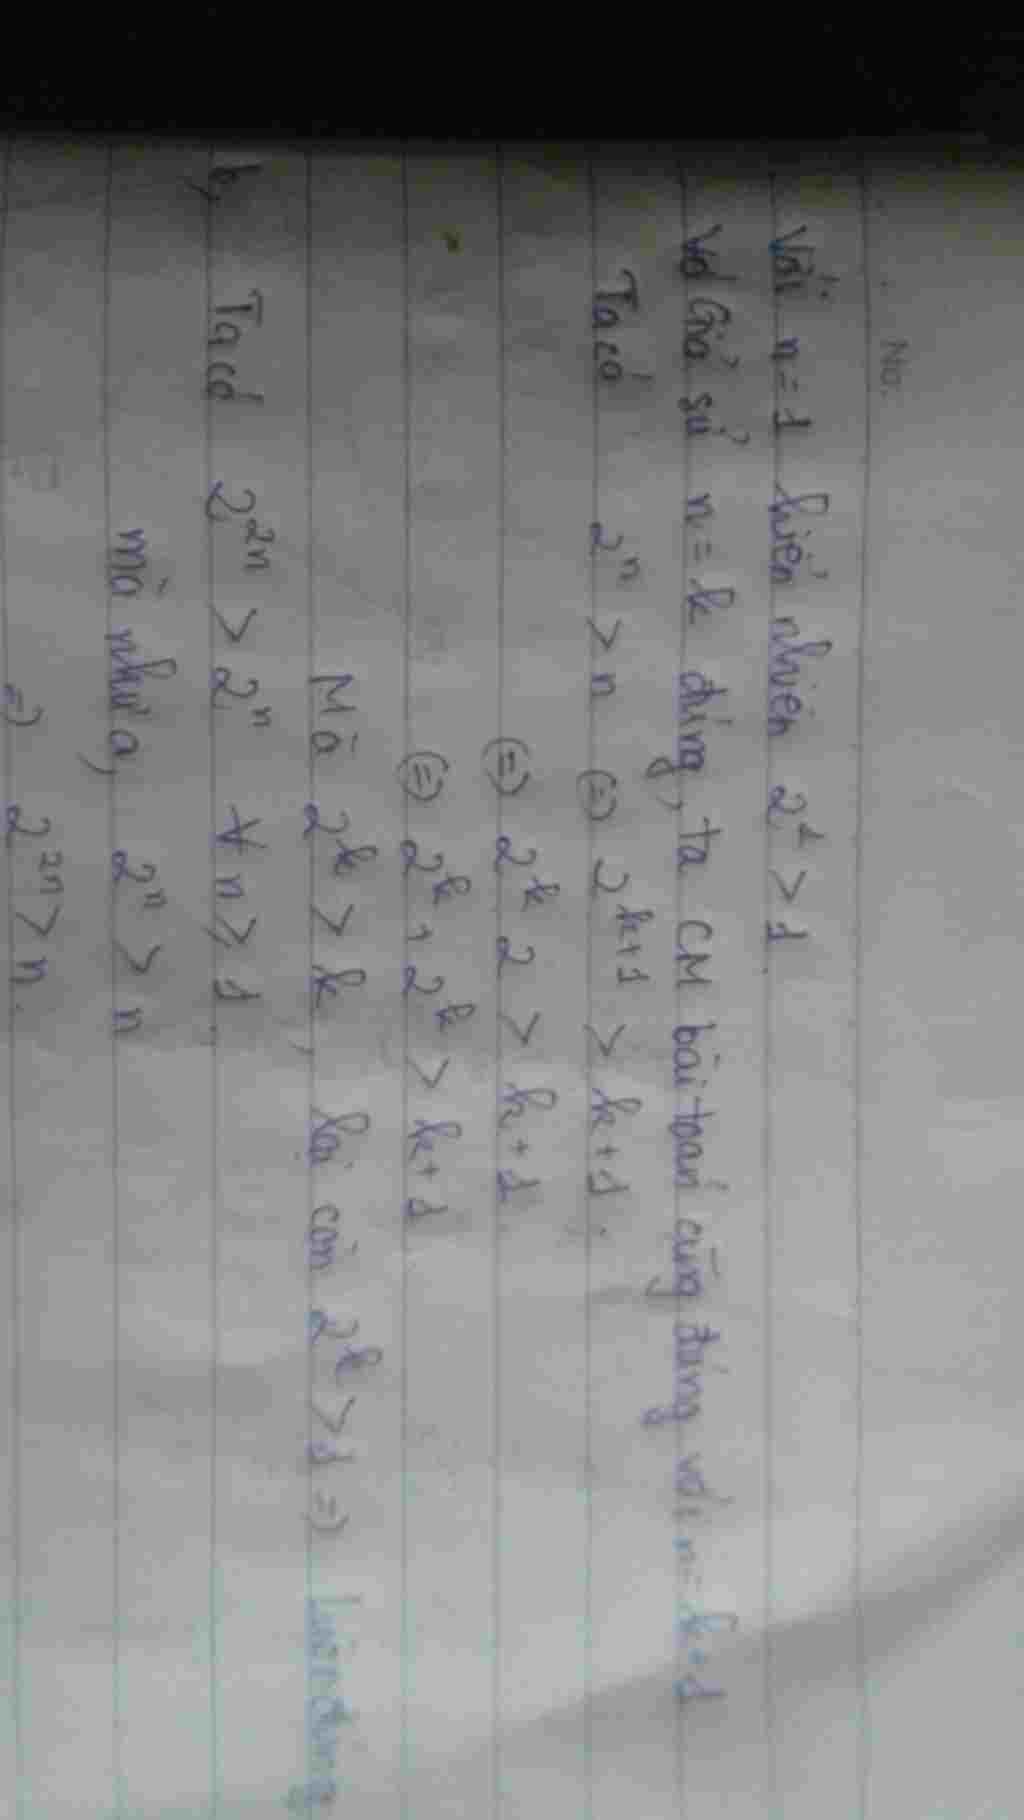 No.
Với n = 1 hiển nhiên 2^1 > 1
Và Giả sử n = k đúng, ta CM bài toán cũng đúng với n = k+1
Ta có 2^n > n (=) 2^{k+1} > k+1.
(=) 2^k 2 > k+1
(=) 2^k + 2^k > k+1
Mà 2^k > k, lại còn 2^k > 1 =) Luôn đúng
b, Ta có 2^{2n} > 2^n ∀ n ≥ 1.
mà như a, 2^n > n
=) 2^{2n} > n.